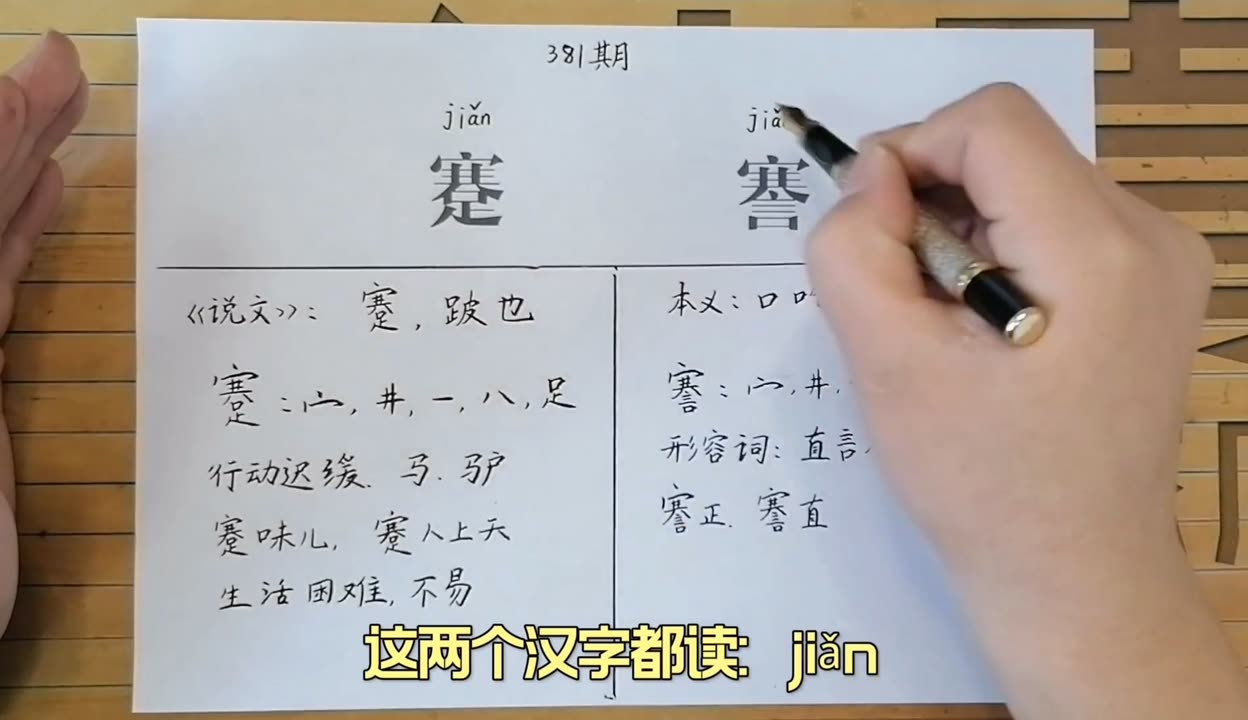 381期
jiǎn
蹇
《说文》：蹇，跛也
蹇：宀，井，一，八，足
行动迟缓．马．驴
蹇味儿，蹇人上天
生活困难，不易
jiǎ
謇
本义：口
謇：宀，井，
形容词：直言
謇正．謇直
这两个汉字都读：jiǎn